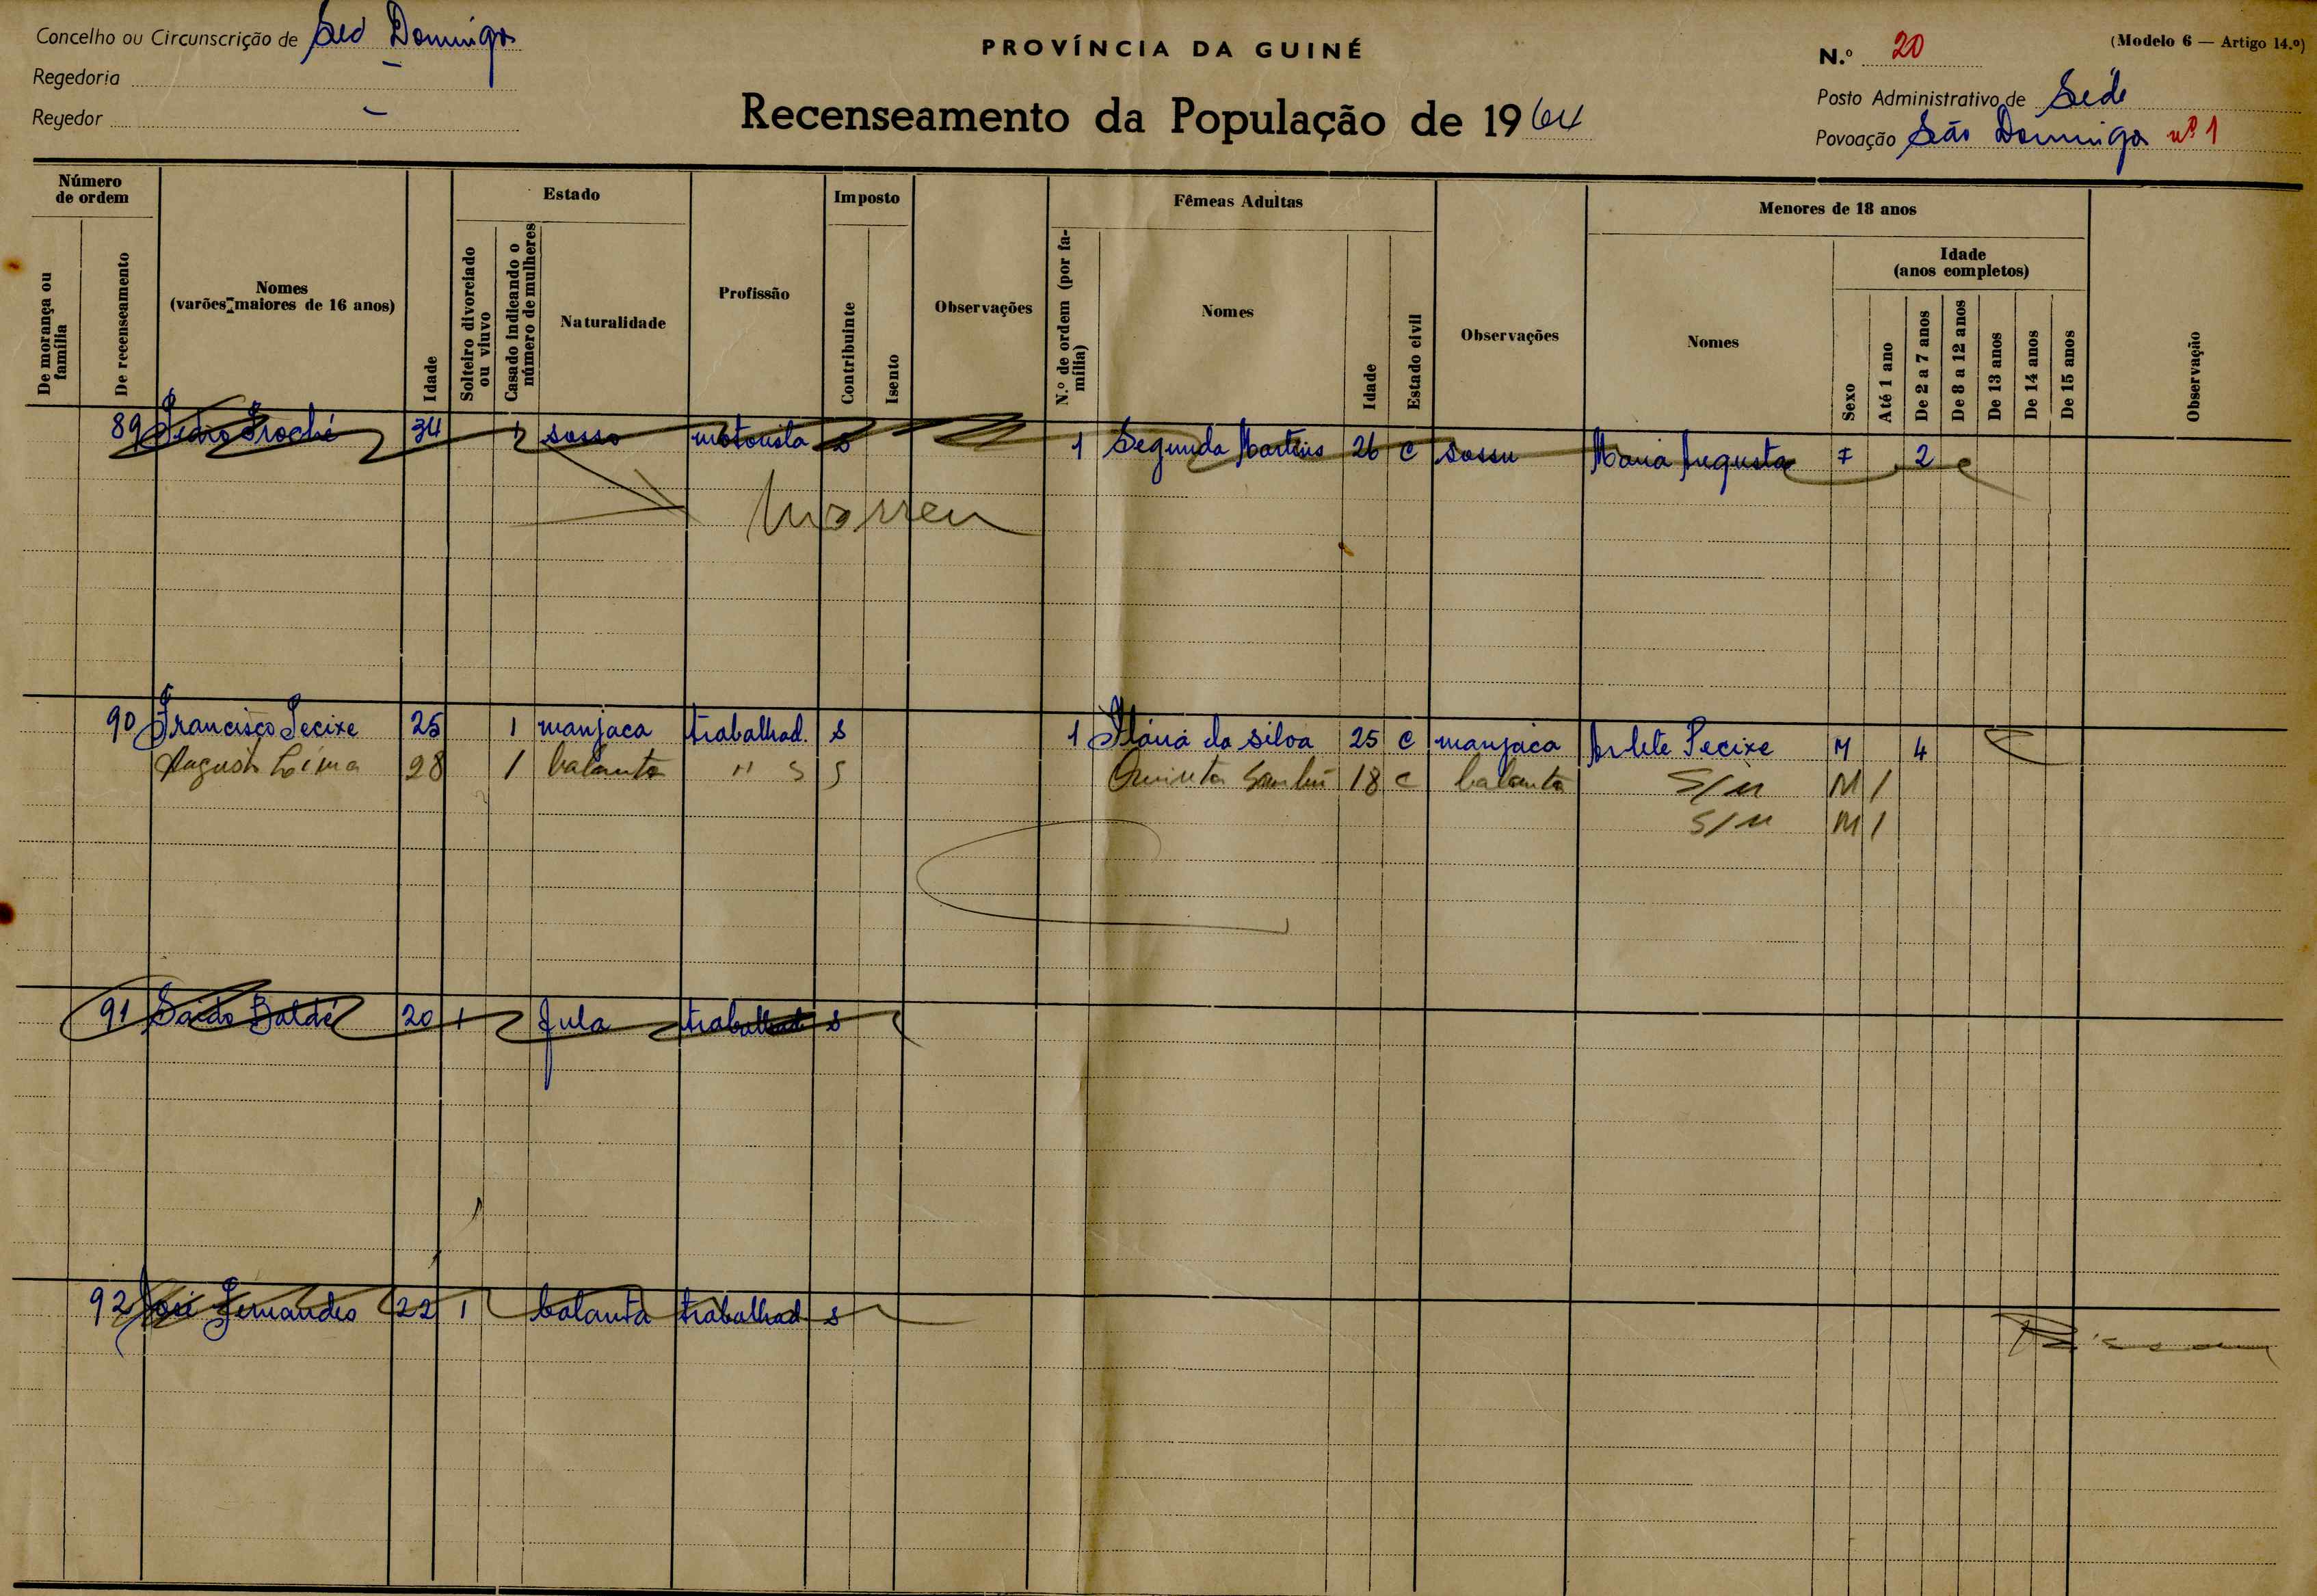 Concelho ou Circunscrição de São Domingos
PROVÍNCIA DA GUINÉ
N.º 20
(Modelo 6 — Artigo 14.º)
Regedoria
Regedor
Recenseamento da População de 1964
Posto Administrativo de Sede
Povoação São Domingos nº 1
Número de ordem
De morança ou família
De recenseamento
Nomes
(varões maiores de 16 anos)
Idade
Estado
Solteiro divorciado ou viuvo
Casado indicando o número de mulheres
Naturalidade
Profissão
Imposto
Contribuinte
Isento
Observações
Fêmeas Adultas
N.º de ordem (por família)
Nomes
Idade
Estado civil
Observações
Menores de 18 anos
Nomes
Idade
(anos completos)
Sexo
Até 1 ano
De 2 a 7 anos
De 8 a 12 anos
De 13 anos
De 14 anos
De 15 anos
Observação
89 34 1 sosso motorista s 1 Segunda Martins 26 c sossu Maria Augusta F 2
Morreu
90 Francisco Pecixe 25 1 manjaca trabalhad. s 1 Maria da silva 25 c manjaca Arlete Pecixe M 4
Augusto 28 1 balanta " S S Quinta 18 c balanta S/N M 1
S/N M 1
91 Saido Baldé 20 1 fula trabalhad. s
92 José Fernandes 22 1 balanta trabalhad. s